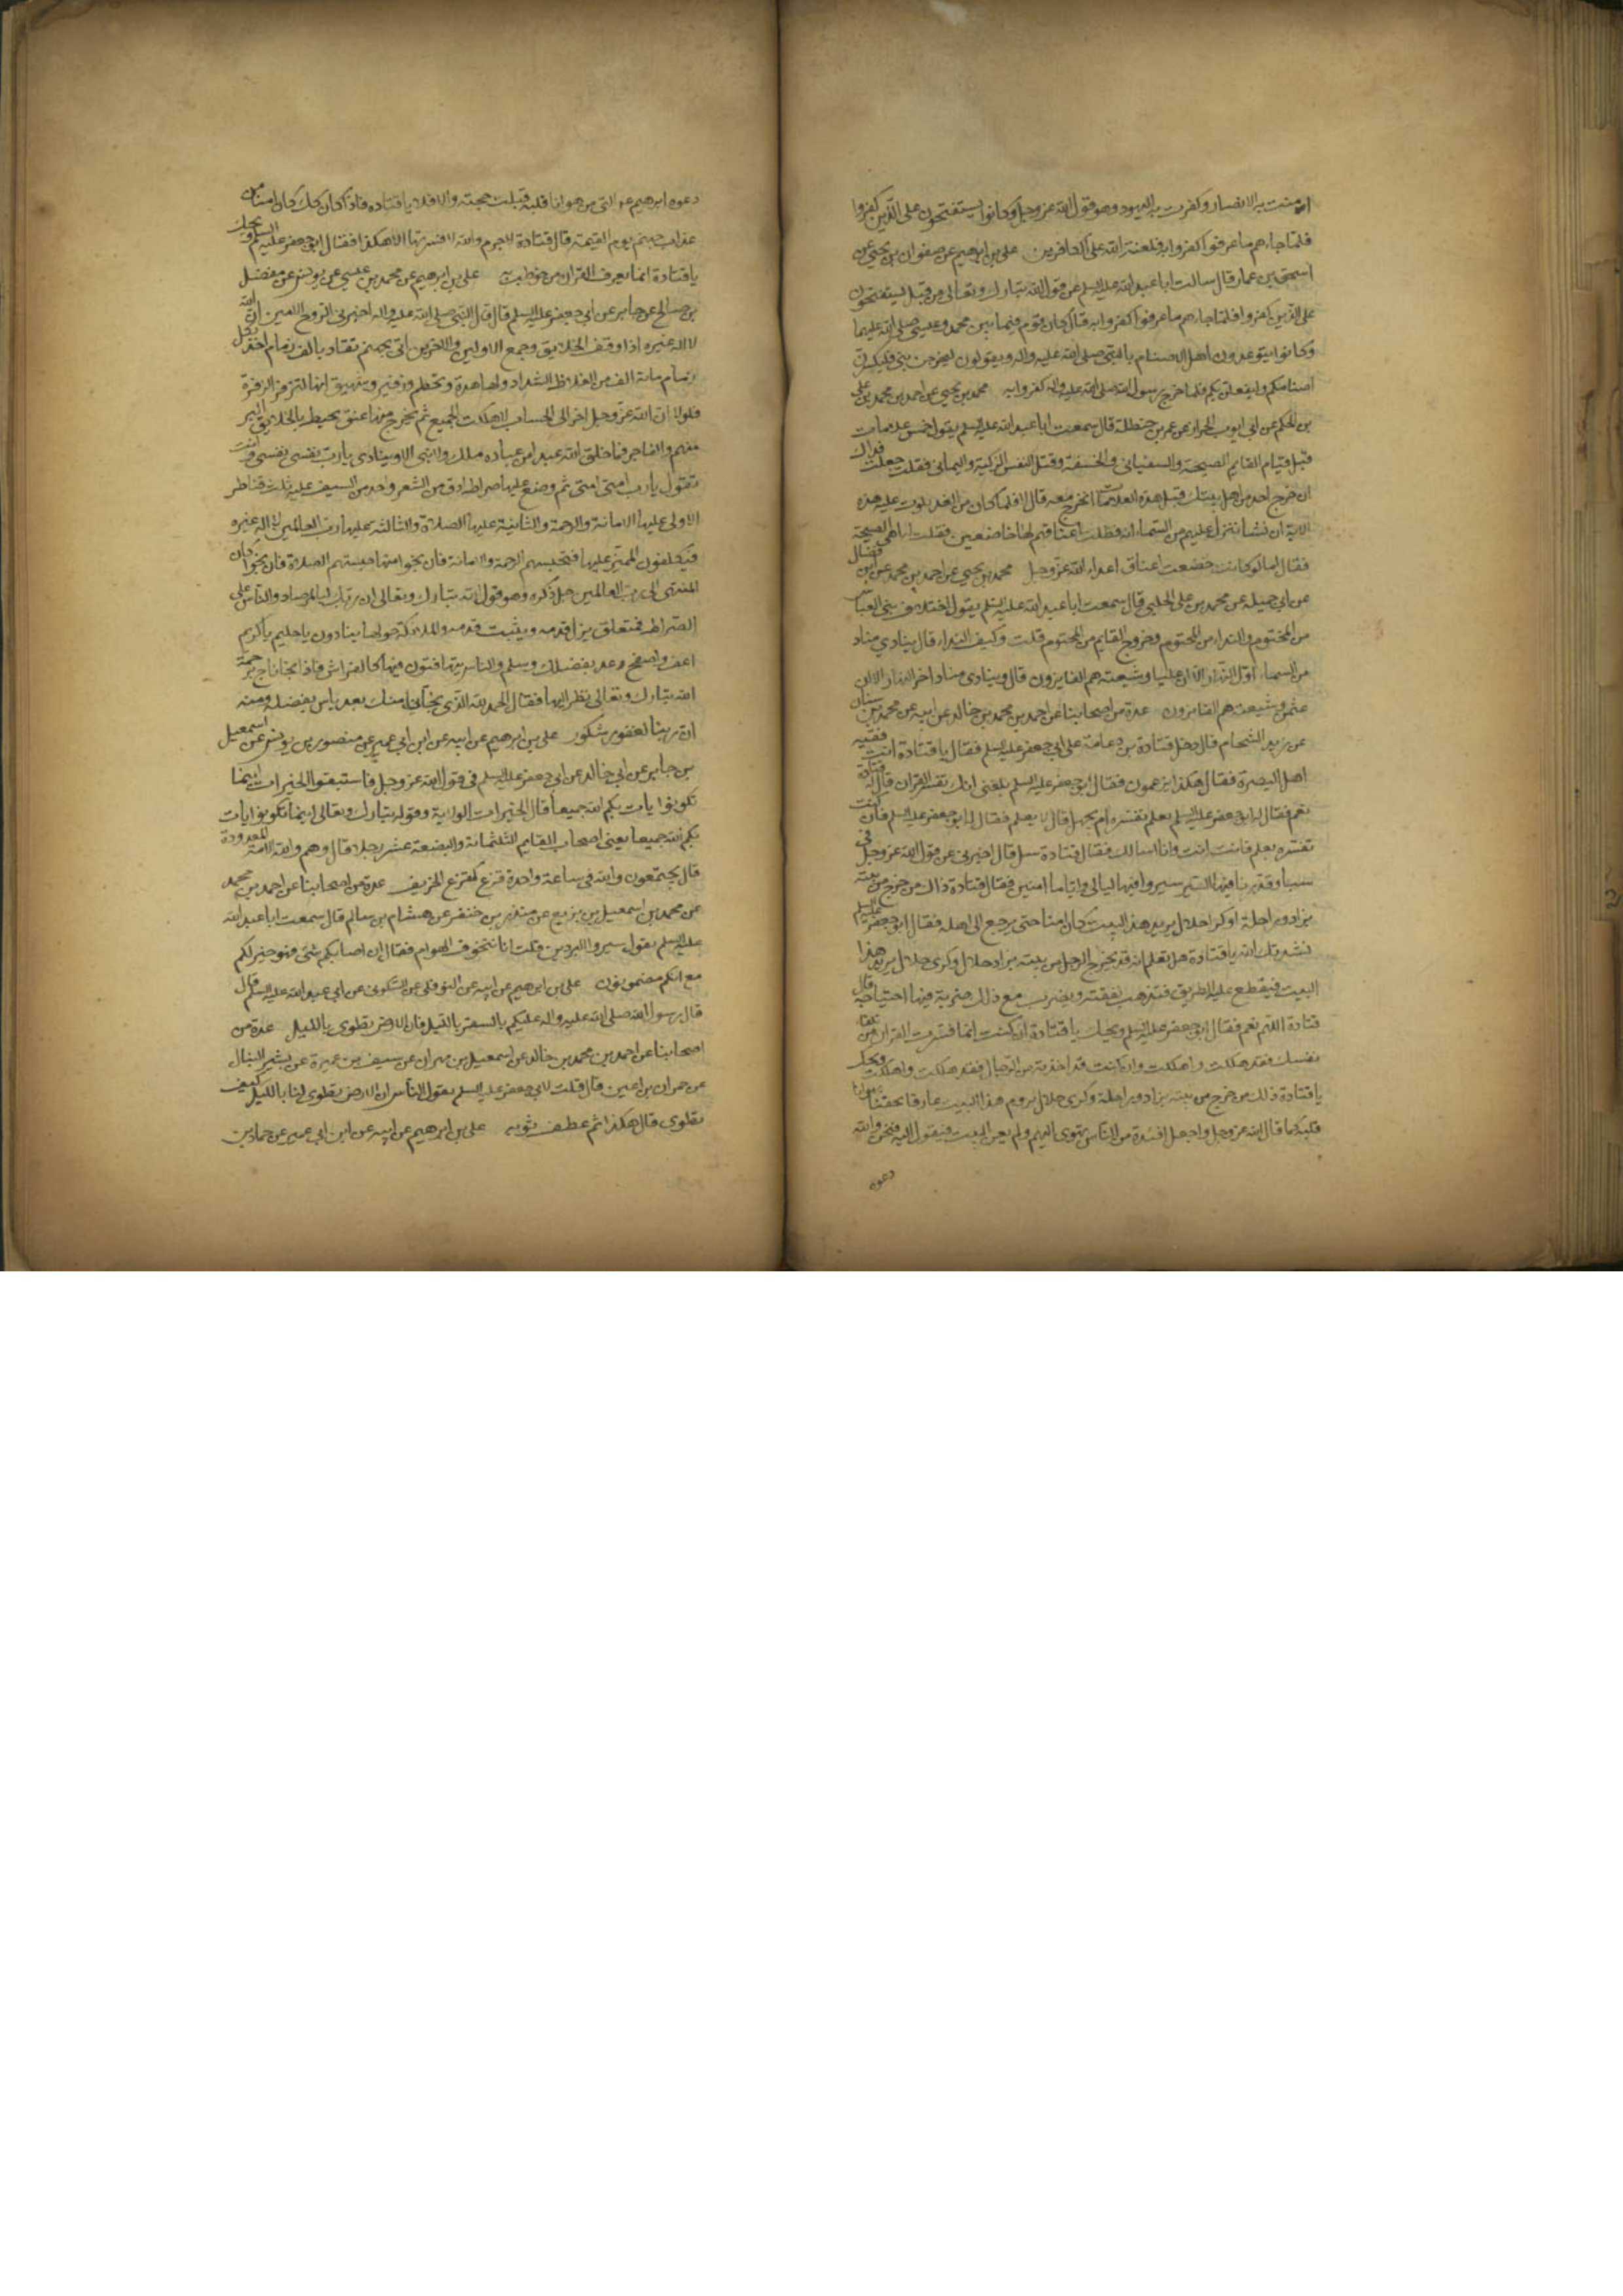 امنت به الانصار وكفرت به اليهود وهو قول الله عز وجل وكانوا يستفتحون على الذين كفروا
فلما جاءهم ما عرفوا كفروا به فلعنة الله على الكافرين علي بن ابرهيم عن صفوان بن يحيى عن
اسحق بن عمار قال سالت ابا عبد الله عليه السلم عن قول الله تبارك وتعالى من قبل يستفتحون
على الذين كفروا فلما جاءهم ما عرفوا كفروا به قال كان قوم فيما بين محمد وعيسى صلى الله عليهما
وكانوا يتوعدون اهل الاصنام بالنبي صلى الله عليه واله ويقولون ليخرجن نبي فليكسرن
اصنامكم وليفعلن بكم فلما خرج رسول الله صلى الله عليه واله كفروا به محمد بن يحيى عن احمد بن محمد عن علي
بن الحكم عن ابي ايوب الخزاز عن عمر بن حنظلة قال سمعت ابا عبد الله عليه السلم يقول خمس علامات
قبل قيام القايم الصيحة والسفياني والخسفة وقتل النفس الزكية واليماني فقلت جعلت فداك
ان خرج احد من اهل بيتك قبل هذه العلامات انخرج معه قال لا فلما كان من الغد تلوت عليه هذه
الاية ان نشا ننزل عليهم من السماء اية فظلت اعناقهم لها خاضعين فقلت له اهي الصيحة
فقال اما لو كانت خضعت اعناق اعداء الله عز وجل محمد بن يحيى عن احمد بن محمد عن ابن فضال
عن ابي جميلة عن محمد بن علي الحلبي قال سمعت ابا عبد الله عليه السلم يقول اختلاف بني العباس
من المحتوم والنداء من المحتوم وخروج القايم من المحتوم قلت وكيف النداء قال ينادي مناد
من السماء اول النهار الا ان عليا وشيعته هم الفايزون قال وينادي مناد اخر النهار الا ان
عثمن وشيعته هم الفايزون عدة من اصحابنا عن احمد بن محمد بن خالد عن ابيه عن محمد بن سنان
عن زيد الشحام قال دخل قتادة بن دعامة على ابي جعفر عليه السلم فقال يا قتادة انت فقيه
اهل البصرة فقال هكذا يزعمون فقال ابو جعفر عليه السلم بلغني انك تفسر القران قال له قتادة
نعم فقال له ابو جعفر عليه السلم بعلم تفسره ام بجهل قال لا بعلم فقال له ابو جعفر عليه السلم فان كنت
تفسره بعلم فانت انت وانا اسالك فقال قتادة سل قال اخبرني عن قول الله عز وجل في
سبا وقدرنا فيها السير سيروا فيها ليالي واياما امنين فقال قتادة ذاك من خرج من بيته
بزاد وراحلة او كرا حلال يريد هذا البيت كان امنا حتى يرجع الى اهله فقال ابو جعفر عليه السلم
نشدتك الله يا قتادة هل تعلم انه قد يخرج الرجل من بيته بزاد حلال وكرى حلال يريد هذا
البيت فيقطع عليه الطريق فتذهب نفقته ويضرب مع ذلك ضربة فيها اجتياحه قال
قتادة اللهم نعم فقال ابو جعفر عليه السلم ويحك يا قتادة ان كنت انما فسرت القران من تلقاء
نفسك فقد هلكت واهلكت وان كنت قد اخذته من الرجال فقد هلكت واهلكت ويحك
يا قتادة ذلك من خرج من بيته بزاد وراحلة وكرى حلال يروم هذا البيت عارفا بحقنا يهوانا
قلبه كما قال الله عز وجل واجعل افئدة من الناس تهوى اليهم ولم يعن البيت فيقول اليه فنحن والله
دعوه
دعوه ابرهيم التي من هوانا قلبه قبلت حجته والا فلا يا قتادة فاذا كان كذلك كان امنا من
عذاب جهنم يوم القيمة قال قتادة لا جرم والله لا فسرتها الا هكذا فقال ابو جعفر عليه السلم ويحك
يا قتادة انما يعرف القران من خوطب به علي بن ابرهيم عن محمد بن عيسى عن يونس عن مفضل
بن صالح عن جابر عن ابي جعفر عليه السلم قال قال النبي صلى الله عليه واله اخبرني الروح الامين ان الله
لا اله غيره اذا وقف الخلايق وجمع الاولين والاخرين اتي بجهنم تقاد بالف زمام اخذ بكل
زمام مائة الف من الغلاظ الشداد ولها هدة وتحطم وزفير وشهيق وانها لتزفر الزفرة
فلولا ان الله عز وجل اخر الى الحساب لاهلكت الجميع ثم يخرج منها عنق يحيط بالخلايق البر
منهم والفاجر فما خلق الله عبدا من عباده ملك ولا نبي الا وينادي يا رب نفسي نفسي وانت
تقول يا رب امتي امتي ثم وضع عليها صراط ادق من الشعر واحد من السيف عليه ثلث قناطر
الاولى عليها الامانة والرحمة والثانية عليها الصلاة والثالثة عليها رب العالمين لا اله غيره
فيكلفون الممر عليها فتحبسهم الرحمة والامانة فان نجوا منها حبستهم الصلاة فان نجوا كان
المنتهى الى رب العالمين جل ذكره وهو قول الله تبارك وتعالى ان ربك لبالمرصاد والناس على
الصراط فمتعلق تزل قدمه ويثبت قدمه والملائكة حولها ينادون يا حليم يا كريم
اعف واصفح وعد بفضلك وسلم والناس يتهافتون فيها كالفراش فاذا نجا ناج برحمة
الله تبارك وتعالى نظر اليها فقال الحمد لله الذي نجاني منك بعد ياس بفضله ومنه
ان ربنا لغفور شكور علي بن ابرهيم عن ابيه عن ابن ابي عمير عن منصور بن يونس عن اسمعيل
بن جابر عن ابي خالد عن ابي جعفر عليه السلم في قول الله عز وجل فاستبقوا الخيرات اينما
تكونوا يات بكم الله جميعا قال الخيرات الولاية وقوله تبارك وتعالى اينما تكونوا يات
بكم الله جميعا يعني اصحاب القايم الثلثمائة والبضعة عشر رجلا قال وهم والله الامة المعدودة
قال يجتمعون والله في ساعة واحدة قزع كقزع الخريف عدة من اصحابنا عن احمد بن محمد
عن محمد بن اسمعيل بن بزيع عن منذر بن جنفر عن هشام بن سالم قال سمعت ابا عبد الله
عليه السلم يقول سيروا البردين قلت انا نتخوف الهوام فقال ان اصابكم شئ فهو خير لكم
مع انكم مضمونون علي بن ابرهيم عن ابيه عن النوفلي عن السكوني عن ابي عبد الله عليه السلم قال
قال رسول الله صلى الله عليه واله عليكم بالسفر بالليل فان الارض تطوى بالليل عدة من
اصحابنا عن احمد بن محمد بن خالد عن اسمعيل بن مهران عن سيف بن عميرة عن بشير النبال
عن حمران بن اعين قال قلت لابي جعفر عليه السلم يقول الناس ان الارض تطوى لنا بالليل كيف
تطوى قال هكذا ثم عطف ثوبه علي بن ابرهيم عن ابيه عن ابن ابي عمير عن حماد بن